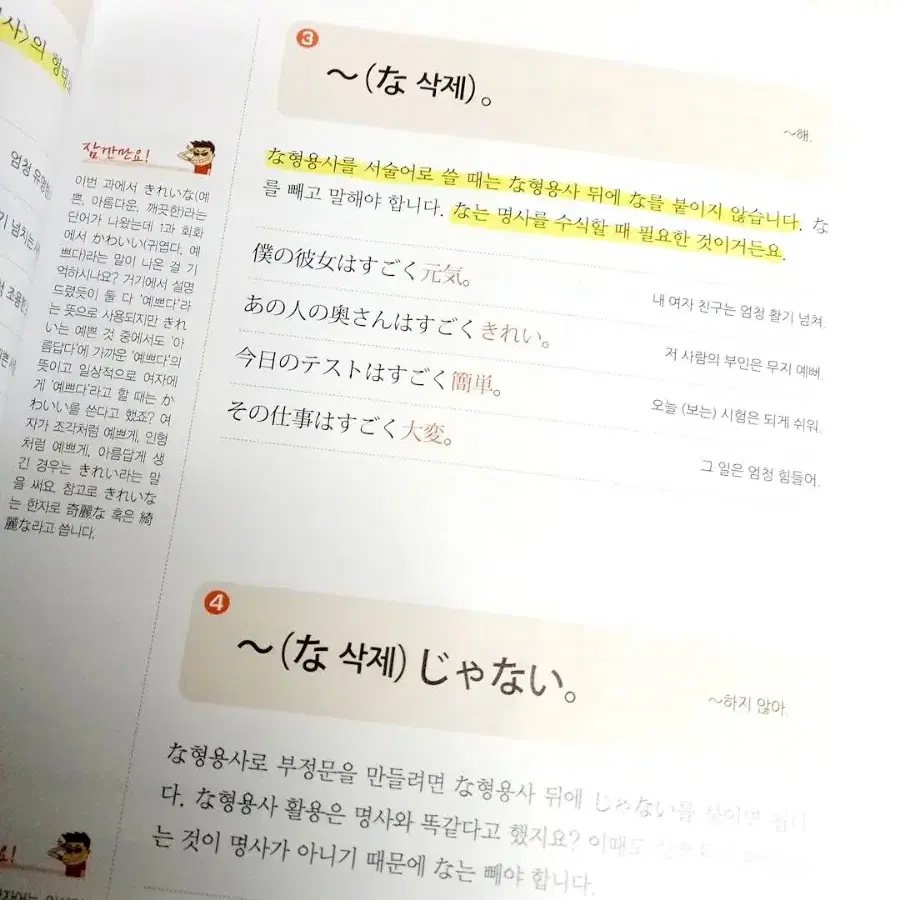 사〉의 형
엄청 유명한
기 넘치는 사
잠깐만요!
이번 과에서 きれいな(예
쁜, 아름다운, 깨끗한)라는
단어가 나왔는데 1과 회화
에서 かわいい(귀엽다, 예
쁘다)라는 말이 나온 걸 기
억하시나요? 거기에서 설명
드렸듯이 둘 다 '예쁘다'라
는 뜻으로 사용되지만 きれ
い는 예쁜 것 중에서도 '아
름답다'에 가까운 '예쁘다'의
뜻이고 일상적으로 여자에
게 '예쁘다'라고 할 때는 か
わいい를 쓴다고 했죠? 여
자가 조각처럼 예쁘게, 인형
처럼 예쁘게, 아름답게 생
긴 경우는 きれい라는 말
을 써요. 참고로 きれいな
는 한자로 奇麗な 혹은 綺
麗な라고 씁니다.
3
～(な 삭제)。
～해.
な형용사를 서술어로 쓸 때는 な형용사 뒤에 な를 붙이지 않습니다. な
를 빼고 말해야 합니다. な는 명사를 수식할 때 필요한 것이거든요.
僕の彼女はすごく元気。
내 여자 친구는 엄청 활기 넘쳐.
あの人の奥さんはすごくきれい。
저 사람의 부인은 무지 예뻐.
今日のテストはすごく簡単。
오늘 (보는) 시험은 되게 쉬워.
その仕事はすごく大変。
그 일은 엄청 힘들어.
4
～(な 삭제) じゃない。
～하지 않아.
な형용사로 부정문을 만들려면 な형용사 뒤에 じゃない를 붙이면 됩니
다. な형용사 활용은 명사와 똑같다고 했지요? 이때도
는 것이 명사가 아니기 때문에 な는 빼야 합니다.